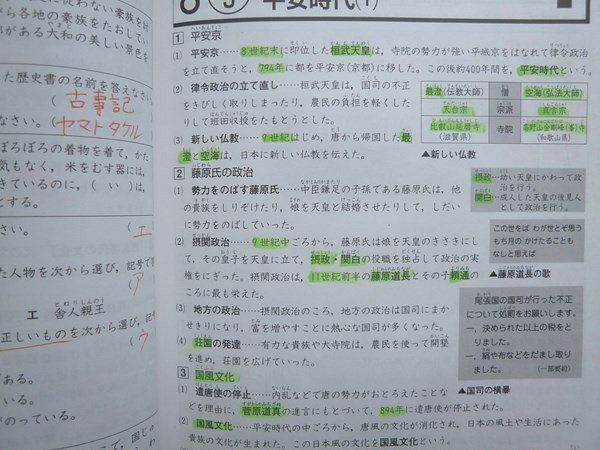 に従わない豪族を討
がら各地の豪族をたおしてい
郷がある大和の美しい景色を
た歴史書の名前を答えなさい。
古事記
なさい。( ヤマトタケル
ぼろぼろの着物を着て,かた
気もなく,米をむす器には,
できているのに,( い )は,
とする。
( エ
た人物を次から選び,記号で
( ア
エ 舎人親王
とねりしんのう
正しいものを次から選び,記
( ウ
ある。
いる。
がのっている。
平安時代(1)
1 平安京
へいあんきょう
(1) 平安京……8世紀末に即位した桓武天皇は,寺院の勢力が強い平城京をはなれて律令政治
を立て直そうと,794年に都を平安京(京都)に移した。この後約400年間を,平安時代という。
(2) 律令政治の立て直し……桓武天皇は,国司の不正
をきびしく取りしまったり,農民の負担を軽くした
りして班田収授をたもとうとした。
(3) 新しい仏教……9世紀はじめ,唐から帰国した最
澄と空海は,日本に新しい仏教を伝えた。
最澄(伝教大師) 僧 空海(弘法大師)
天台宗 宗派 真言宗
比叡山延暦寺 寺院 高野山金剛峰(峯)寺
(滋賀県) (和歌山県)
▲新しい仏教
2 藤原氏の政治
(1) 勢力をのばす藤原氏……中臣鎌足の子孫である藤原氏は,他
の貴族をしりぞけたり,娘を天皇と結婚させたりして,しだい
に勢力をのばしていった。
(2) 摂関政治……9世紀中ごろから,藤原氏は娘を天皇のきさきにし
て,その皇子を天皇に立て,摂政・関白の役職を独占して政治の実
権をにぎった。摂関政治は,11世紀前半の藤原道長とその子頼通の
ころに最も栄えた。
(3) 地方の政治……摂関政治のころ,地方の政治は国司にまか
せきりになり,富を増やすことに熱心な国司が多くなった。
(4) 荘園の発達……有力な貴族や大寺院は,農民を使って開墾
を進め,荘園を広げていった。
摂政…幼い天皇にかわって政
治を行う。
関白…成人した天皇の後見人
として政治を行う。
この世をば わが世とぞ思う
もち月の かけたることも
なしと思えば
▲藤原道長の歌
尾張国の国司が行った不正
について処罰をお願いします。
一,決められた以上の税をと
りました。
一,絹や布などをだまし取り
ました。 (一部要約)
▲国司の横暴
3 国風文化
(1) 遣唐使の停止……内乱などで唐の勢力がおとろえたことな
どを理由に,菅原道真の進言にもとづいて,894年に遣唐使が停止された。
(2) 国風文化……平安時代の中ごろから,唐風の文化が消化され,日本の風土や生活にあった
貴族の文化が生まれた。この日本風の文化を国風文化という。